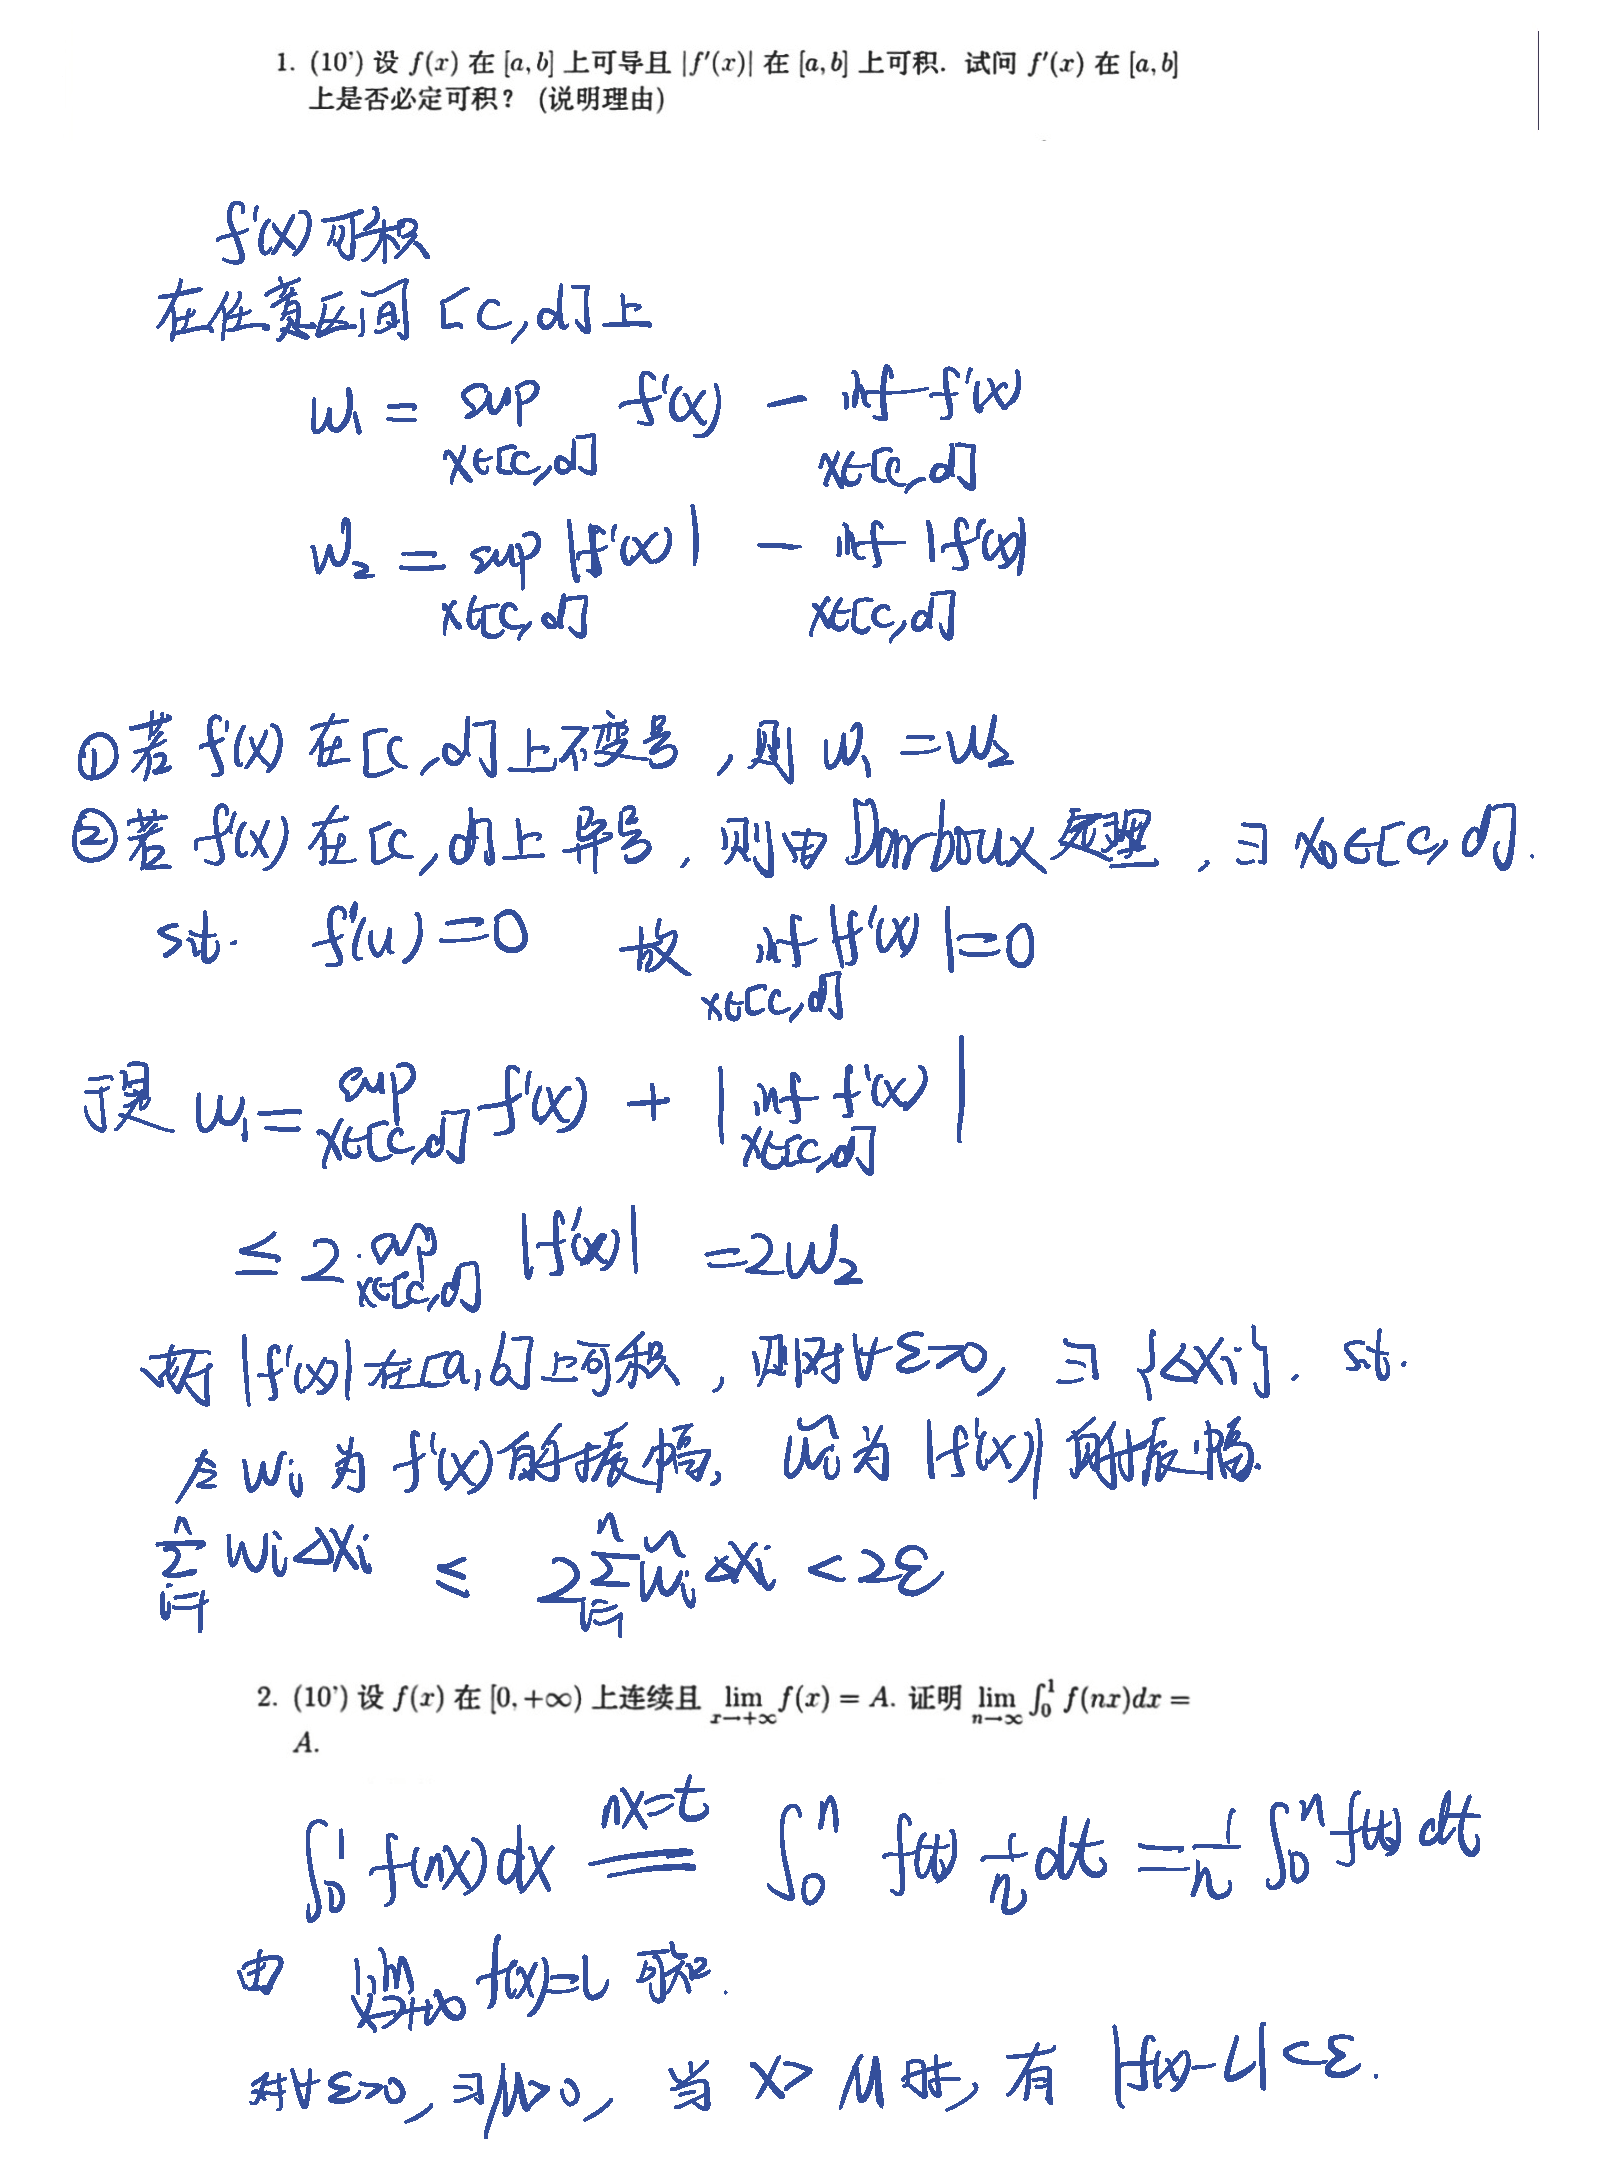 1. (10') 设 f(x) 在 [a, b] 上可导且 |f'(x)| 在 [a, b] 上可积. 试问 f'(x) 在 [a, b]
上是否必定可积? (说明理由)
f'(x) 可积
在任意区间 [c, d] 上
w₁ = sup f'(x) - inf f'(x)
x∈[c, d] x∈[c, d]
w₂ = sup |f'(x)| - inf |f'(x)|
x∈[c, d] x∈[c, d]
①若 f'(x) 在 [c, d] 上不变号, 则 w₁ = w₂
②若 f'(x) 在 [c, d] 上异号, 则由 Darboux 定理, ∃ x₀∈[c, d].
s.t. f'(u) = 0 故 inf |f'(x)| = 0
x∈[c, d]
于是 w₁ = sup f'(x) + | inf f'(x) |
x∈[c, d] x∈[c, d]
≤ 2·sup |f'(x)| = 2w₂
x∈[c, d]
|f'(x)| 在 [a, b] 上可积, 则对 ∀ ε>0, ∃ {Δxᵢ}. s.t.
令 wᵢ 为 f'(x) 的振幅, w̃ᵢ 为 |f'(x)| 的振幅.
n n
∑ wᵢΔxᵢ ≤ 2∑ w̃ᵢΔxᵢ < 2ε
i=1 i=1
2. (10') 设 f(x) 在 [0, +∞) 上连续且 lim f(x) = A. 证明 lim ∫₀¹ f(nx)dx =
x→+∞ n→∞
A.
nx=t
∫₀¹ f(nx)dx = ∫₀ⁿ f(t) 1/n dt = 1/n ∫₀ⁿ f(t) dt
由 lim f(x)=L 可知.
x→+∞
对∀ ε>0, ∃M>0, 当 x> M 时, 有 |f(x)-L|<ε.